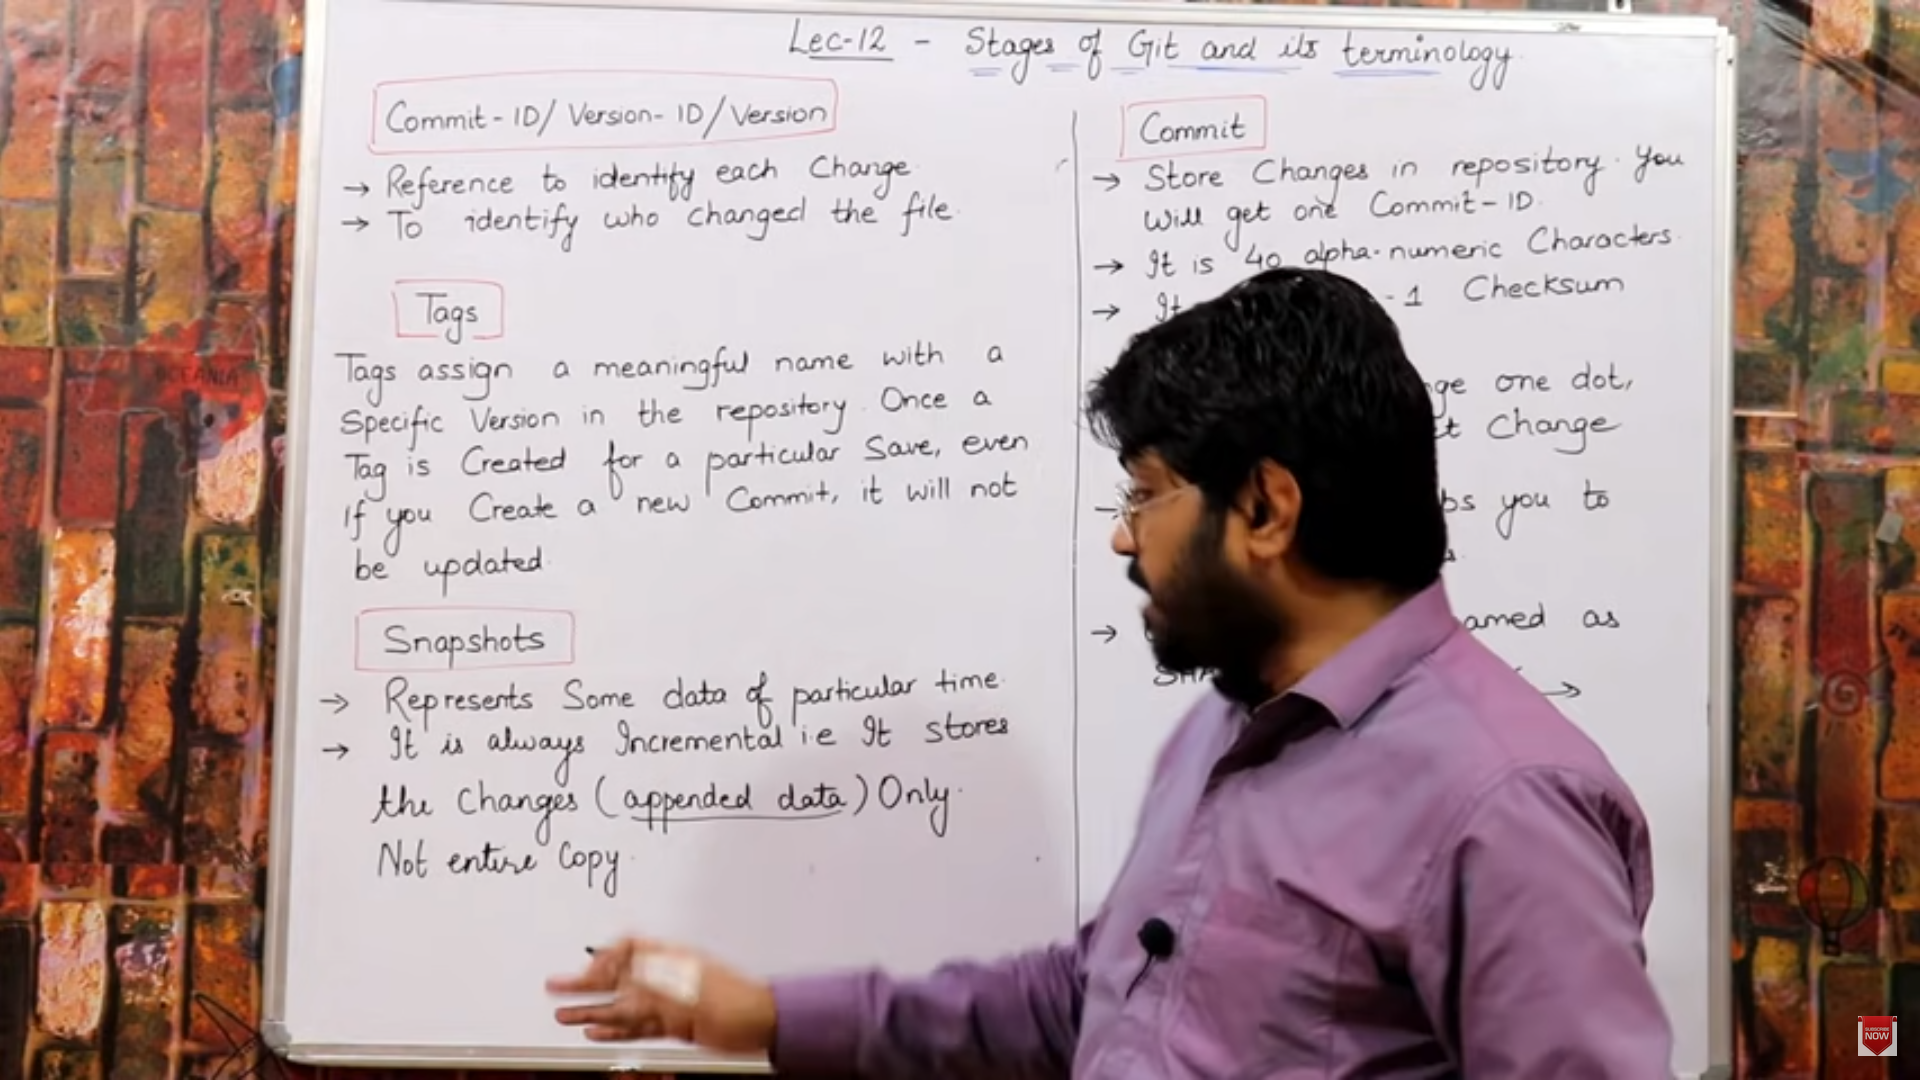 Lec-12 - Stages of Git and its terminology
Commit-ID/Version-ID/Version
→ Reference to identify each Change.
→ To identify who changed the file.
Tags
Tags assign a meaningful name with a
Specific Version in the repository. Once a
Tag is Created for a particular Save, even
if you Create a new Commit, it will not
be updated.
Snapshots
→ Represents Some data of particular time.
→ It is always Incremental i.e It stores
the Changes (appended data) Only.
Not entire Copy.
Commit
→ Store Changes in repository. You
will get one Commit-ID.
→ It is 40 alpha-numeric Characters.
→ It -1 Checksum
one dot,
Change
→ you to
→ as
SUBSCRIBE
NOW